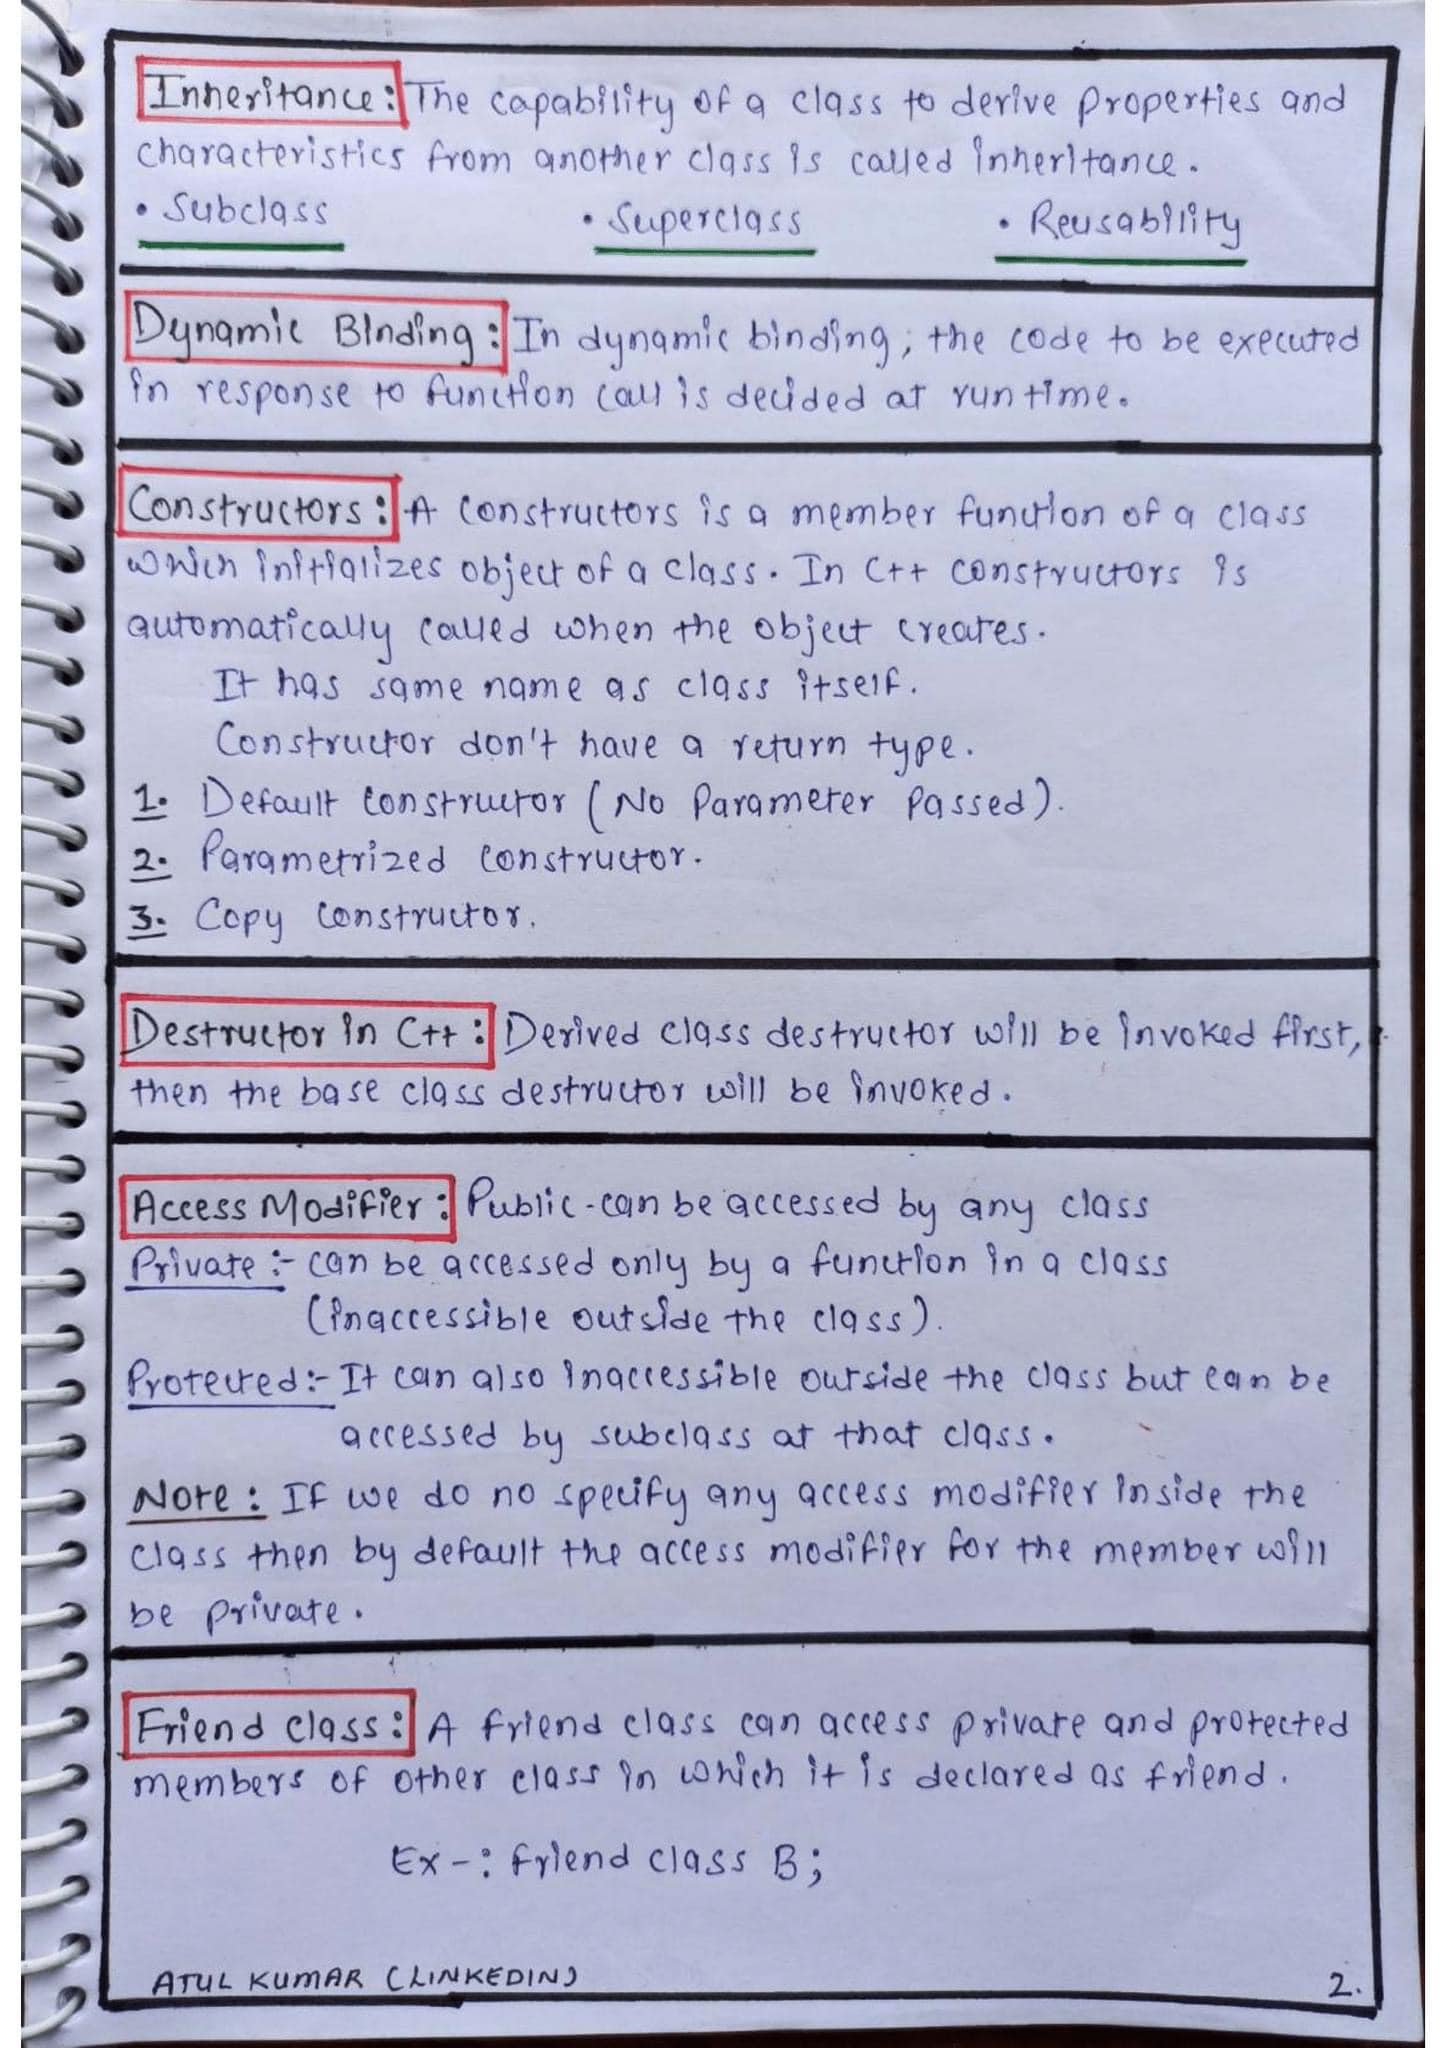 Inheritance: The capability of a class to derive properties and
characteristics from another class is called inheritance.
• Subclass • Superclass • Reusability
Dynamic Binding: In dynamic binding, the code to be executed
in response to function call is decided at runtime.
Constructors: A constructors is a member function of a class
which initializes object of a class. In C++ constructors is
automatically called when the object creates.
It has same name as class itself.
Constructor don't have a return type.
1. Default constructor (No parameter passed).
2. Parametrized constructor.
3. Copy constructor.
Destructor in C++: Derived class destructor will be invoked first,
then the base class destructor will be invoked.
Access Modifier: Public - can be accessed by any class
Private :- can be accessed only by a function in a class
(inaccessible outside the class).
Protected :- It can also inaccessible outside the class but can be
accessed by subclass at that class.
Note: If we do no specify any access modifier inside the
class then by default the access modifier for the member will
be private.
Friend class: A friend class can access private and protected
members of other class in which it is declared as friend.
Ex -: friend class B;
ATUL KUMAR (LINKEDIN) 2.